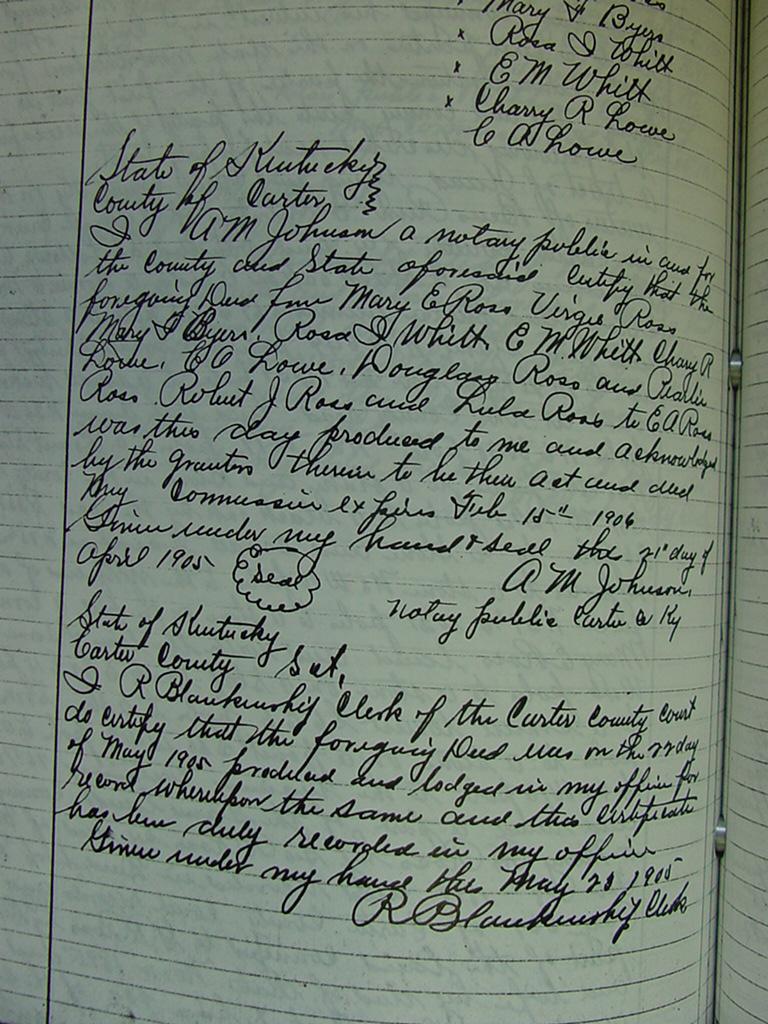 Mary F Byers
x Rosa I Whitt
x E M Whitt
x Charry R Lowe
C A Lowe
State of Kentucky
County of Carter
I A M Johnson a notary public in and for
the County and State aforesaid Certify that the
foregoing Deed from Mary E Ross Virgie Ross
Mary F Byers, Rosa I Whitt, E M. Whitt Charry R
Lowe, C A Lowe, Douglass Ross and Pearlie
Ross Robert J Ross and Lula Ross to E A Ross
was this day produced to me and acknowledged
by the grantors therein to be their act and deed
My Commission expires Feb 15" 1906
Given under my hand & seal this 21" day of
April 1905 Seal
A M Johnson,
Notary public Carter Co Ky
State of Kentucky
Carter County Sct,
I R Blankinship Clerk of the Carter County Court
do certify that the foregoing Deed was on the 22 day
of May 1905 produced and lodged in my office for
record whereupon the same and this certificate
has been duly recorded in my office
Given under my hand this May 23 1905
R Blankinship Clerk